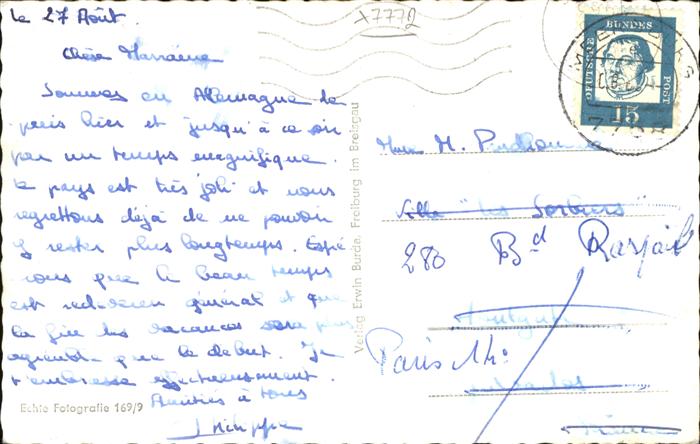 le 27 Août.
A7772
Chère Marraine
Sommes en Allemagne de
puis hier et jusqu'à ce soir
par un temps magnifique.
le pays est très joli et nous
regrettons déjà de ne pouvoir
y rester plus longtemps. Espé
rons que le beau temps
est redevenu général et que
la fin des vacances sera plus
agréable que le début. Je
t'embrasse affectueusement.
Amitiés à tous
Philippe
Echte Fotografie 169/9
Verlag Erwin Burda, Freiburg im Breisgau
DEUTSCHE BUNDES POST
15
Mme M.
Villa "les Sorbiers"
280 Bd Raspail
Paris 14e